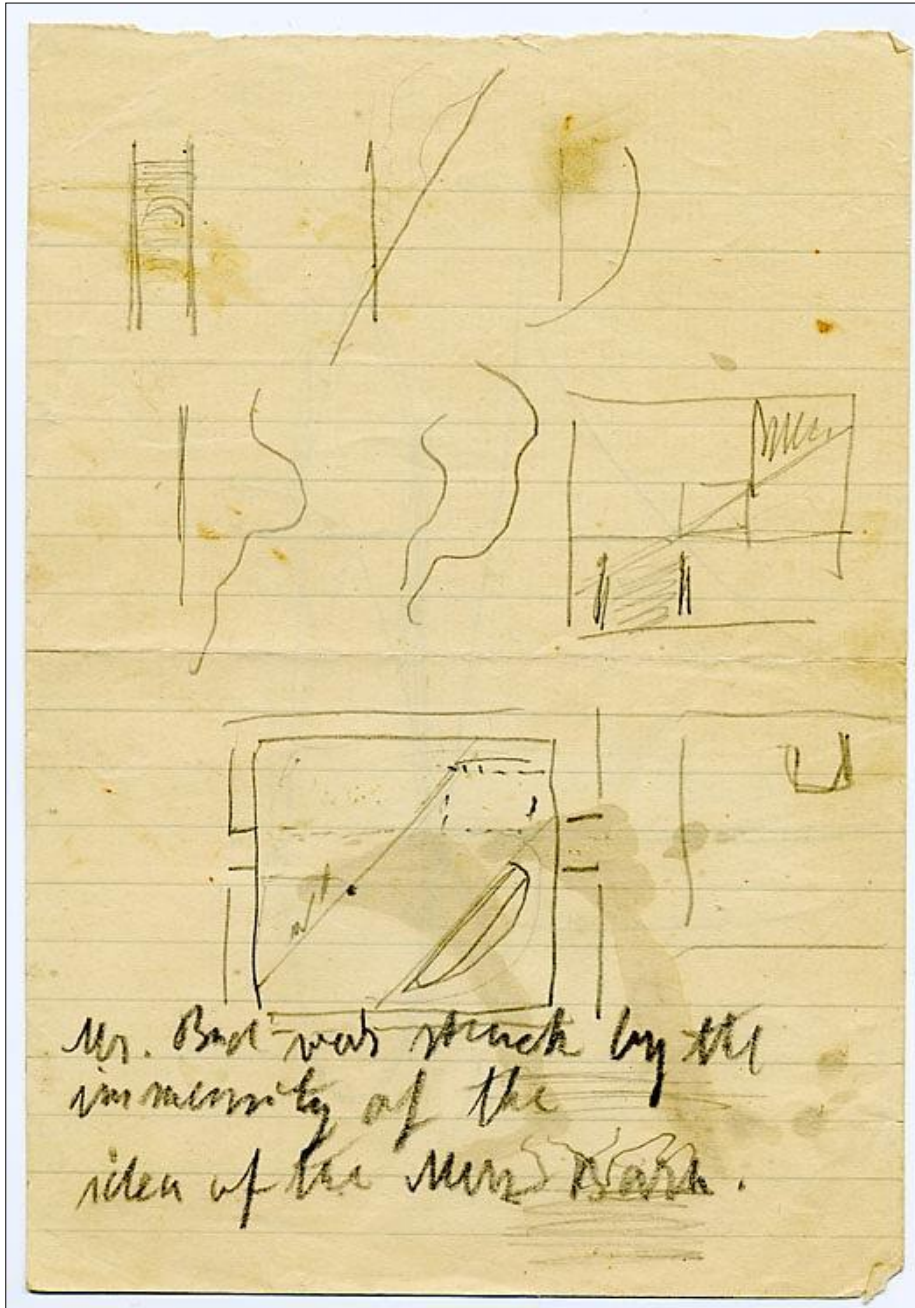 Mr. was struck by the
immensity of the
idea of the Merz Barn.